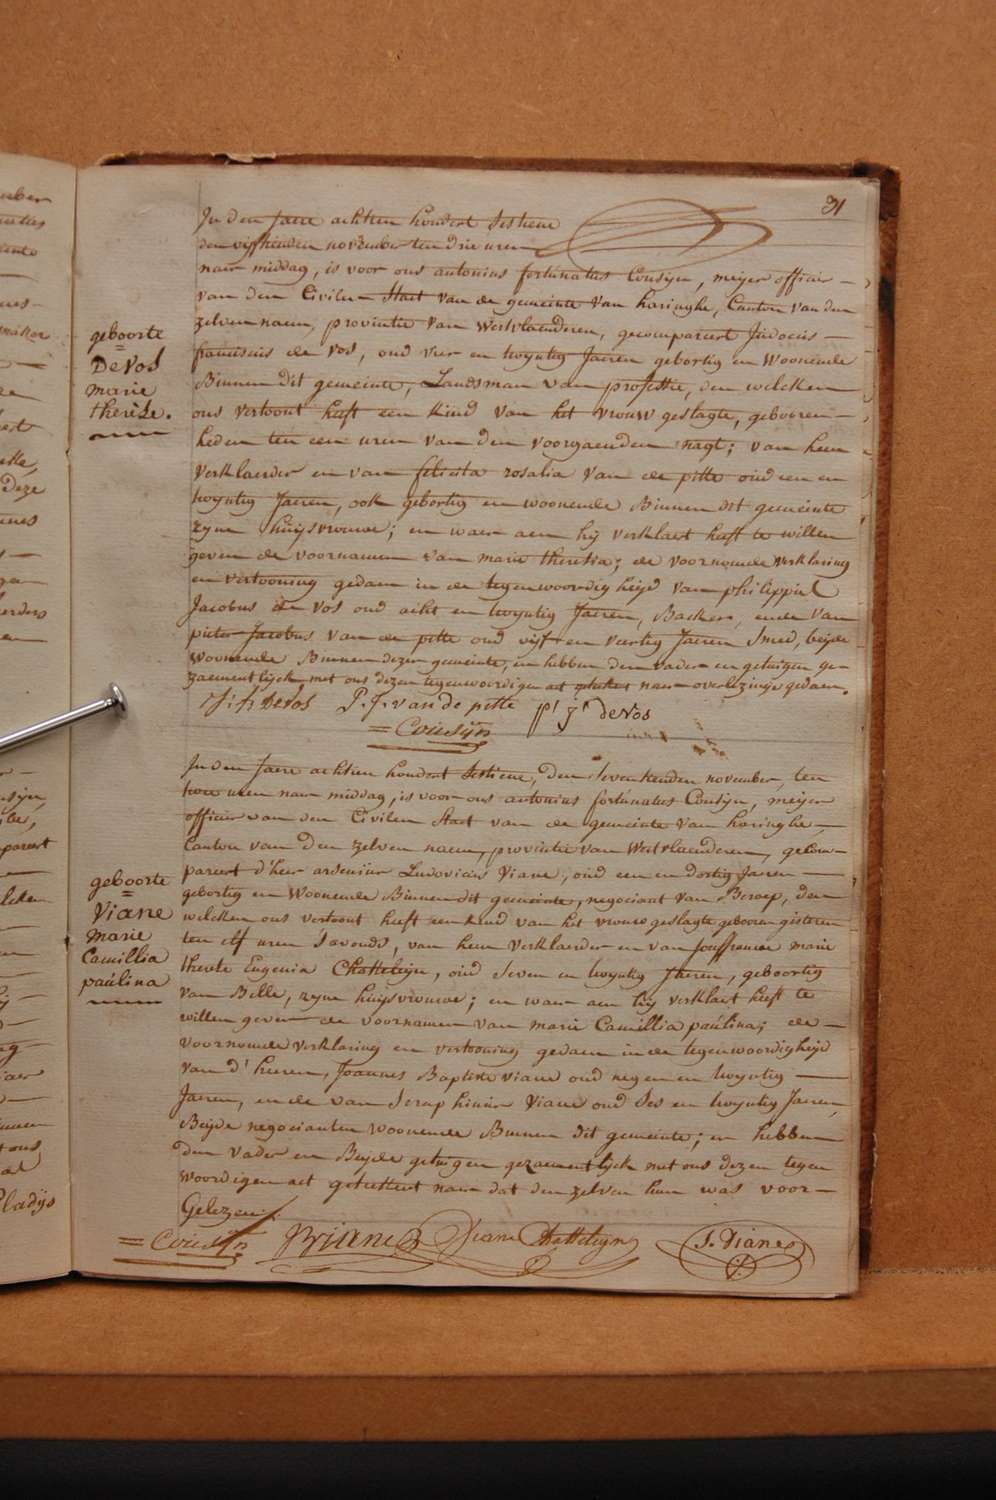 31
In den Jaere achtien hondert sestiene
den vijfthienden november ten drie uren
naer middag, is voor ons antonius fortunatus Cousijn, meijer officier
van den Civilen Staet van de gemeente van haringhe, Canton van den
zelven naem, provintie van Westvlaenderen, gecompareert Judocus
franciscus de vos, oud vier en twyntig Jaeren gebortig en Woonende
Binnen dit gemeinte, Landsman van professie, den welcken
ons vertoont heeft een kind van het vrouw geslagte, gebooren
heden ten een uren van den voorgaenden nagt; van hem
verklaerder en van felicita rosalia van de pitte oud een en
twyntig Jaeren, ook gebortig en woonende Binnen dit gemeente
zyne huijsvrouwe; en waer aen hij verklaert heeft te willen
geven de voornamen van marie theresia; de voornoemde verklaring
en vertooning gedaen in de tegenwoordigheijd van philippus
Jacobus de vos oud acht en twyntig Jaeren, Backer, ende van
pieter Jacobus van de pitte oud vijf en veertig Jaeren Smed, beijde
woonende Binnen dezer gemeente, en hebben den vader en getuigen ge-
zaementlijck met ons dezen tegenwoordigen act geteekent naer overlezinge gedaen.
J: f: De Vos P. J. van de pitte p' j' de vos
= Cousijn
geboorte
=
De Vos
marie
therese.
In den Jaere achtien hondert sestiene, den seventhenden november, ten
twee uren naer middag, is voor ons antonius fortunatus Cousijn, meijer
officier van den Civilen Staet van de gemeente van haringhe,
Canton van den zelven naem, provintie van Westvlaenderen, gecom-
pareert d'heer arsenius Ludovicus Viane, oud een en dortig Jaeren
gebortig en Woonende Binnen dit gemeinte, negociant van Beroep, den
welcken ons vertoont heeft een kind van het vrouw geslagte gebooren gisteren
ten elf uren s'avonds, van hem verklaerder en van Jouffrouwe marie
therese Eugenia Chatteleyn, oud seven en twyntig Jaeren, geboortig
van Belle, zyne huijsvrouwe; en waer aen hij verklaert heeft te
willen geven de voornamen van marie Camillia paulina; de
voornoemde verklaring en vertooning gedaen in de tegenwoordigheijd
van d'heeren, Joannes Baptiste viane oud negen en twyntig
Jaeren, ende van Seraphinus Viane oud ses en twyntig Jaeren,
Beijde negocianten woonende Binnen dit gemeinte; en hebben
den vader en Beijde getuigen gezaementlijck met ons dezen tegen
woordigen act geteekent naer dat den zelven hun was voor-
Gelezen.
= Cousijn Viane Viane Chattelyn S. Viane
geboorte
=
Viane
marie
Camillia
paulina